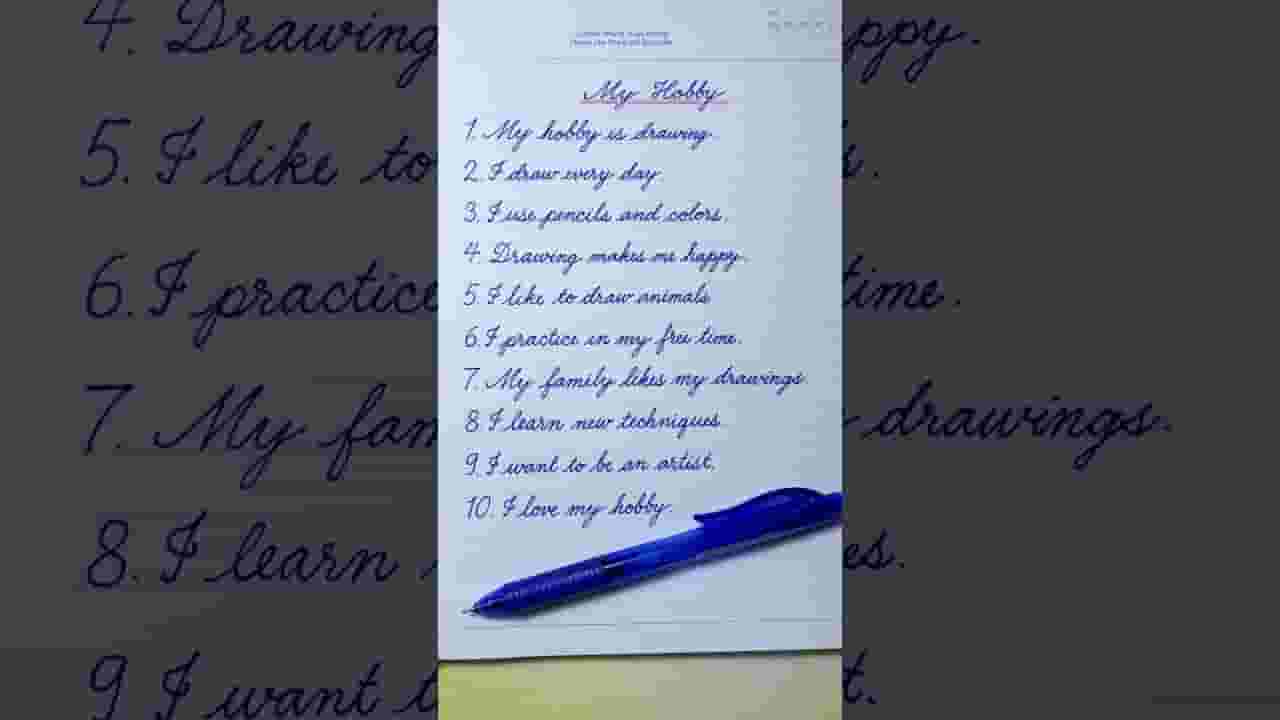 My Hobby
1. My hobby is drawing.
2. I draw every day
3. I use pencils and colors.
4. Drawing makes me happy.
5. I like to draw animals
6. I practice in my free time.
7. My family likes my drawings.
8. I learn new techniques
9. I want to be an artist.
10. I love my hobby.